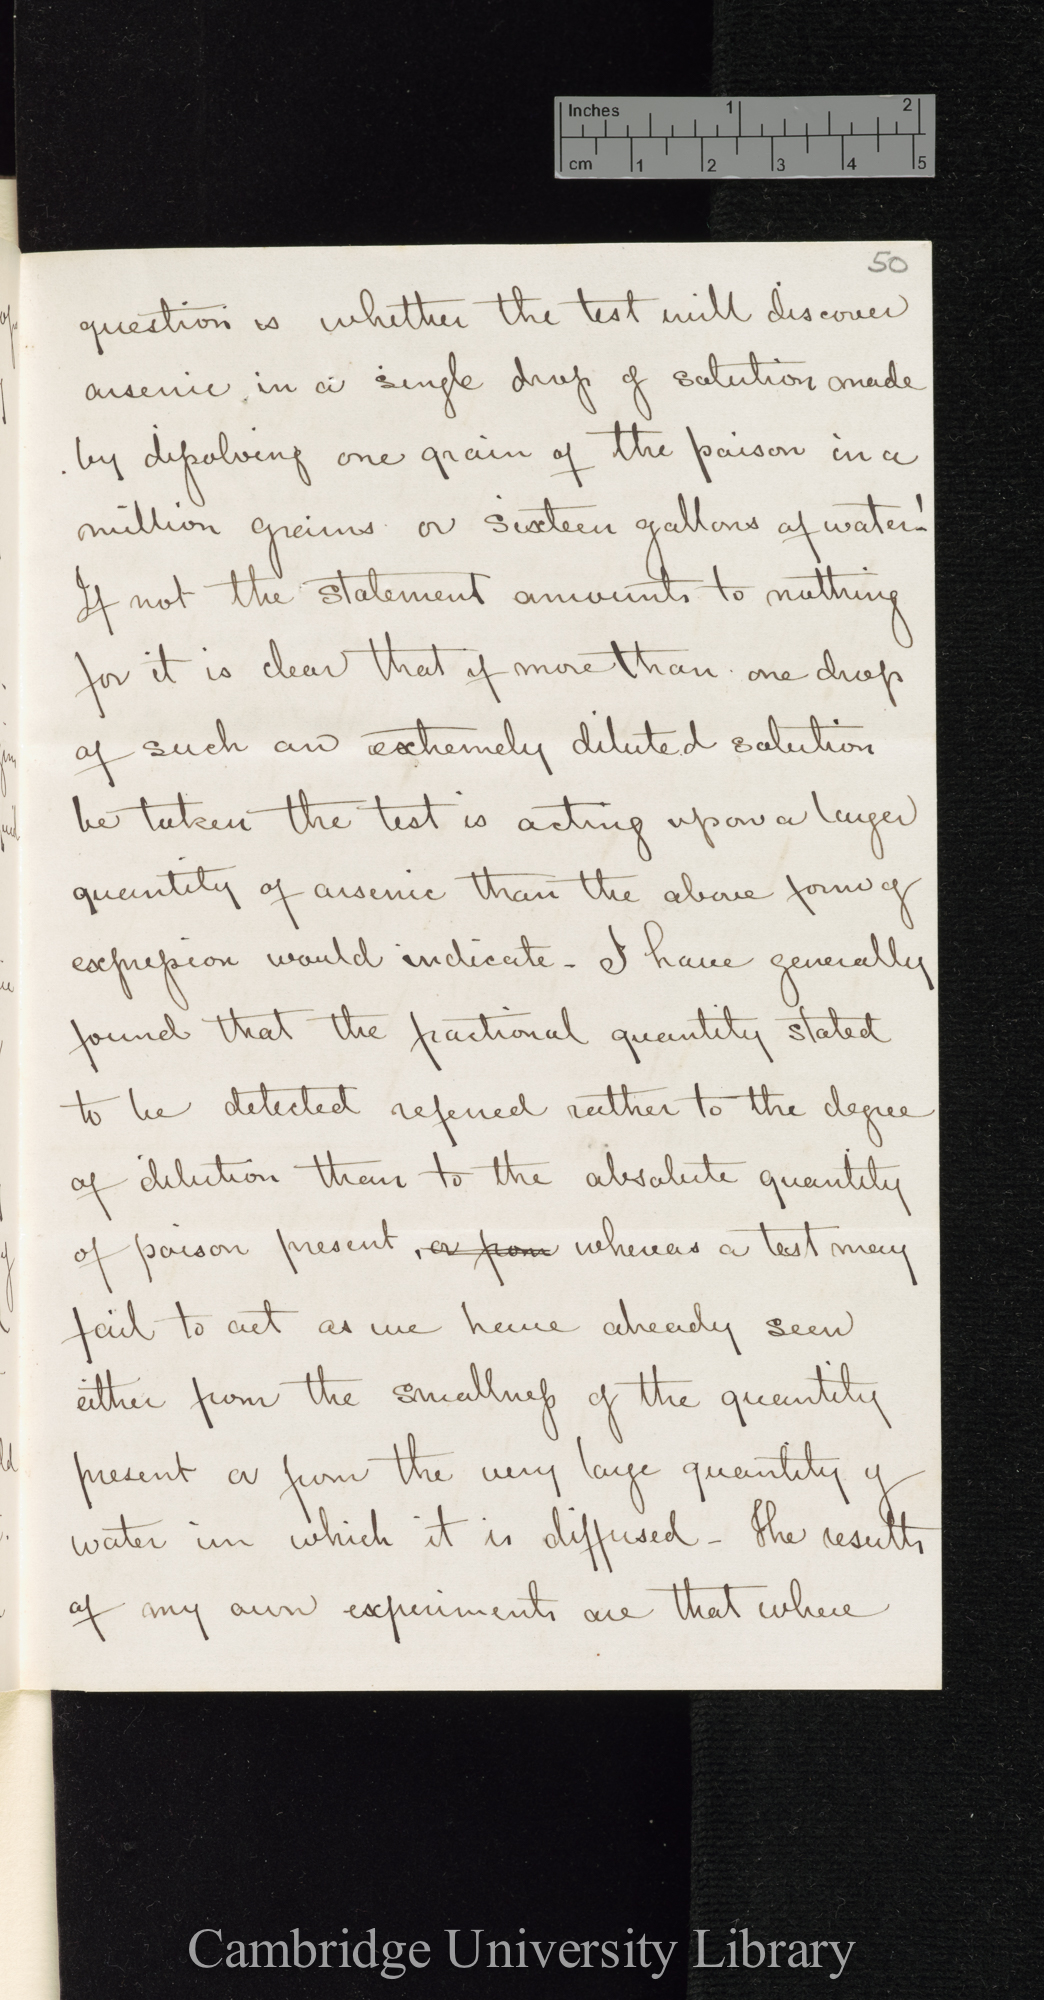 Inches 1 2
cm 1 2 3 4 5
50
question is whether the test will discover
arsenic in a single drop of solution made
by dissolving one grain of the poison in a
million grains or sixteen gallons of water!
If not the statement amounts to nothing
for it is clear that if more than one drop
of such an extremely diluted solution
be taken the test is acting upon a larger
quantity of arsenic than the above form of
expression would indicate - I have generally
found that the fractional quantity stated
to be detected referred rather to the degree
of dilution than to the absolute quantity
of poison present, or from whereas a test may
fail to act as we have already seen
either from the smallness of the quantity
present or from the very large quantity of
water in which it is diffused - The results
of my own experiments are that where
Cambridge University Library